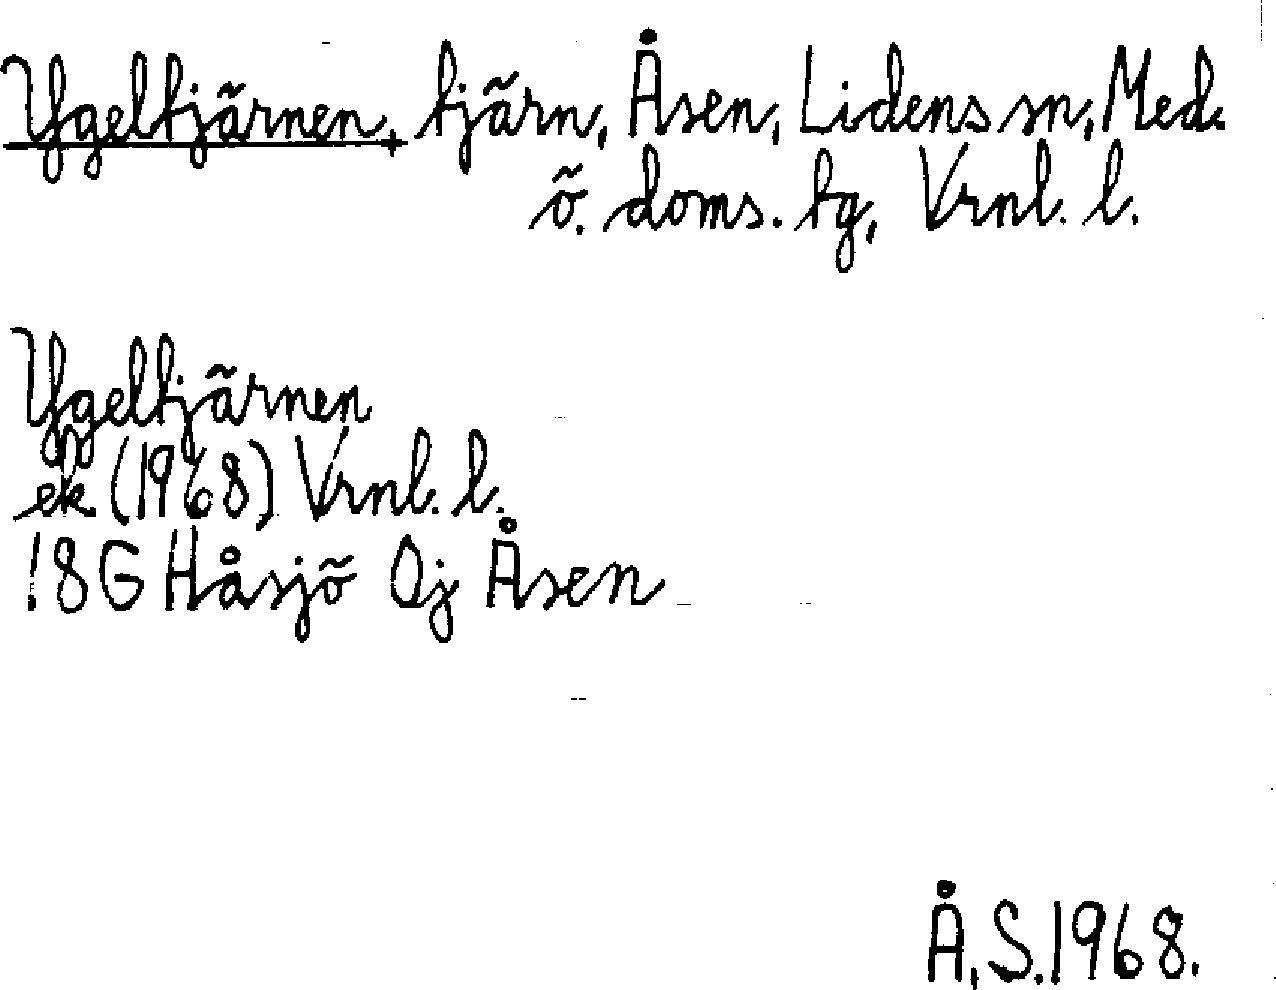 Ygeltjärnen, tjärn, Åsen, Lidens sn, Med.
ö. doms. tg, Vrnl. l.
Ygeltjärnen
ek (1968) Vrnl. l.
!8G Håsjö 0j Åsen
Å.S. 1968.